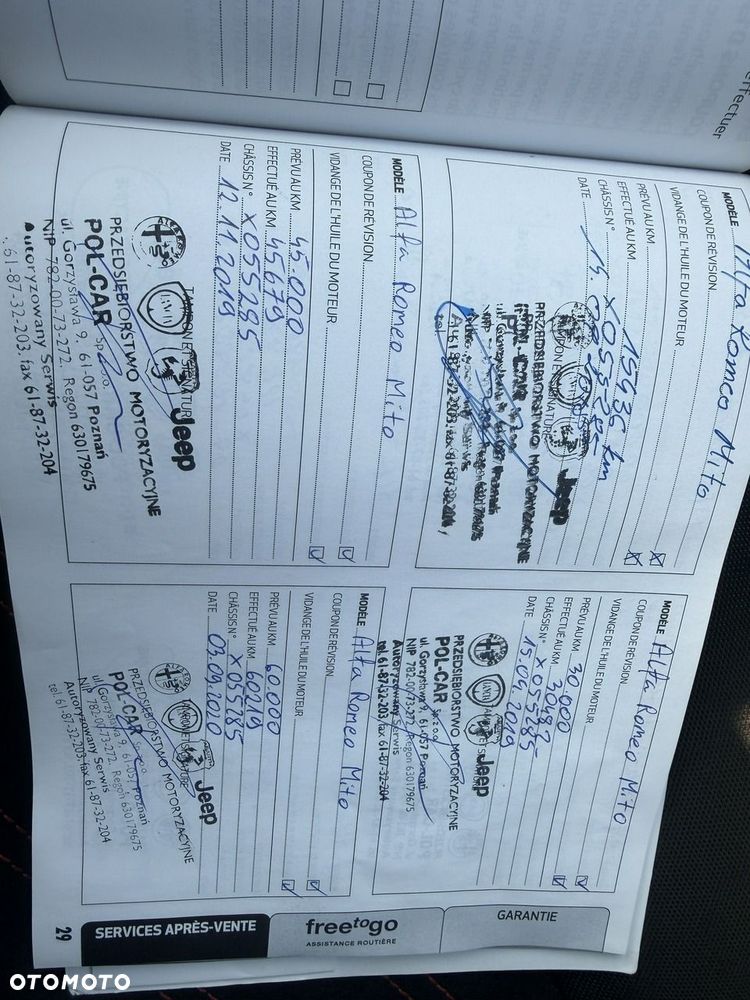 effectuer
MODÈLE Alfa Romeo Mito
COUPON DE RÉVISION
VIDANGE DE L'HUILE DU MOTEUR
PRÉVU AU KM
EFFECTUÉ AU KM 15436 km
CHÂSSIS N°
DATE
PRZEDSIĘBIORSTWO MOTORYZACYJNE
Jeep
MODÈLE Alfa Romeo Mito
COUPON DE RÉVISION
VIDANGE DE L'HUILE DU MOTEUR
PRÉVU AU KM 30.000
EFFECTUÉ AU KM 30487
CHÂSSIS N° X055285
DATE 15.04.2019
Jeep
PRZEDSIĘBIORSTWO MOTORYZACYJNE
POL-CAR Sp. z o.o.
ul. Gorzysława 9, 61-057 Poznań
NIP 782-00-73-272, Regon 630179675
Autoryzowany Serwis
tel. 61-87-32-203, fax 61-87-32-204
MODÈLE Alfa Romeo Mito
COUPON DE RÉVISION
VIDANGE DE L'HUILE DU MOTEUR
PRÉVU AU KM 45.000
EFFECTUÉ AU KM 45679
CHÂSSIS N° X055285
DATE 12.11.2019
Jeep
PRZEDSIĘBIORSTWO MOTORYZACYJNE
POL-CAR Sp. z o.o.
ul. Gorzysława 9, 61-057 Poznań
NIP 782-00-73-272, Regon 630179675
Autoryzowany Serwis
61-87-32-203, fax 61-87-32-204
MODÈLE Alfa Romeo Mito
COUPON DE RÉVISION
VIDANGE DE L'HUILE DU MOTEUR
PRÉVU AU KM 60.000
EFFECTUÉ AU KM 60219
CHÂSSIS N° X055285
DATE 03.09.2020
Jeep
PRZEDSIĘBIORSTWO MOTORYZACYJNE
POL-CAR Sp. z o.o.
ul. Gorzysława 9, 61-057 Poznań
NIP 782-00-73-272, Regon 630179675
Autoryzowany Serwis
tel. 61-87-32-203, fax 61-87-32-204
GARANTIE
freetogo
ASSISTANCE ROUTIÈRE
SERVICES APRÈS-VENTE
29
OTOMOTO